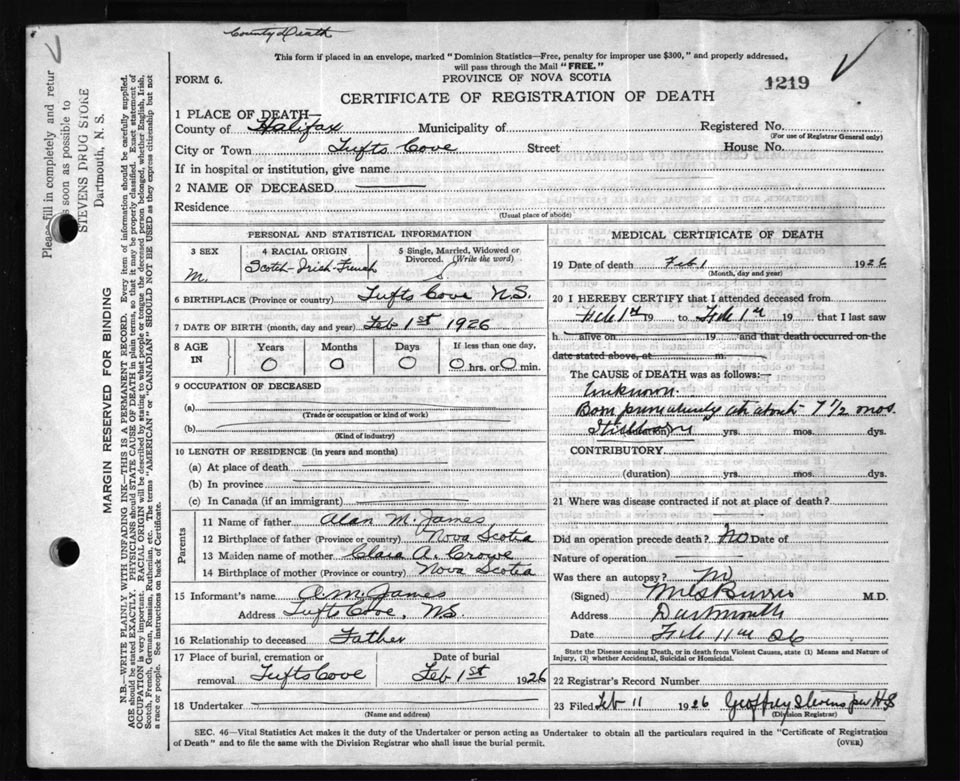 County Death
This form if placed in an envelope, marked "Dominion Statistics—Free, penalty for improper use $300," and properly addressed,
will pass through the Mail "FREE."
FORM 6.
PROVINCE OF NOVA SCOTIA
1219
CERTIFICATE OF REGISTRATION OF DEATH
1 PLACE OF DEATH—
County of Halifax Municipality of Registered No.
(For use of Registrar General only)
City or Town Tufts Cove Street House No.
If in hospital or institution, give name
2 NAME OF DECEASED
Residence
(Usual place of abode)
PERSONAL AND STATISTICAL INFORMATION
3 SEX
M.
4 RACIAL ORIGIN
Scotch-Irish-French
5 Single, Married, Widowed or
Divorced. (Write the word)
S
6 BIRTHPLACE (Province or country) Tufts Cove N.S.
7 DATE OF BIRTH (month, day and year) Feb 1st 1926
8 AGE
IN
Years
0
Months
0
Days
0
If less than one day,
0 hrs. or 0 min.
9 OCCUPATION OF DECEASED
(a)
(Trade or occupation or kind of work)
(b)
(Kind of industry)
10 LENGTH OF RESIDENCE (in years and months)
(a) At place of death
(b) In province
(c) In Canada (if an immigrant)
Parents
11 Name of father Alan M. James
12 Birthplace of father (Province or country) Nova Scotia
13 Maiden name of mother Clara A. Crowe
14 Birthplace of mother (Province or country) Nova Scotia
15 Informant's name A M James
Address Tufts Cove, N.S.
16 Relationship to deceased Father
17 Place of burial, cremation or
removal Tufts Cove
Date of burial
Feb 1st 1926
18 Undertaker
(Name and address)
MEDICAL CERTIFICATE OF DEATH
19 Date of death Feb 1 1926
(Month, day and year)
20 I HEREBY CERTIFY that I attended deceased from
Feb 1st 19 to Feb 1st 19 that I last saw
h alive on 19 and that death occurred on the
date stated above, at m.
The CAUSE of DEATH was as follows:—
Unknown.
Born prematurely at about 7 1/2 mos.
Stillborn (duration) yrs. mos. dys.
CONTRIBUTORY
(duration) yrs. mos. dys.
21 Where was disease contracted if not at place of death?
Did an operation precede death? No Date of
Nature of operation
Was there an autopsy? No
(Signed) Burris M.D.
Address Dartmouth
Date Feb 11th 26
State the Disease causing Death, or in death from Violent Causes, state (1) Means and Nature of
Injury, (2) whether Accidental, Suicidal or Homicidal.
22 Registrar's Record Number
23 Filed Feb 11 1926 Geoffrey Stevens per H.S
(Division Registrar)
SEC. 46—Vital Statistics Act makes it the duty of the Undertaker or person acting as Undertaker to obtain all the particulars required in the "Certificate of Registration
of Death" and to file the same with the Division Registrar who shall issue the burial permit.
(OVER)
Please fill in completely and retur
s soon as possible to
STEVENS DRUG STORE
Dartmouth, N. S.
MARGIN RESERVED FOR BINDING
N.B.—WRITE PLAINLY WITH UNFADING INK—THIS IS A PERMANENT RECORD. Every item of information should be carefully supplied.
AGE should be stated EXACTLY. PHYSICIANS should STATE CAUSE OF DEATH in plain terms, so that it may be properly classified. Exact statement of
OCCUPATION is very important. RACIAL ORIGIN will be described by stating to what people or tongue the deceased person belonged, whether English, Irish,
Scotch, French, German, Russian, Ruthenian, etc. The terms "AMERICAN" or "CANADIAN" SHOULD NOT BE USED as they express citizenship but not
a race or people. See instructions on back of Certificate.